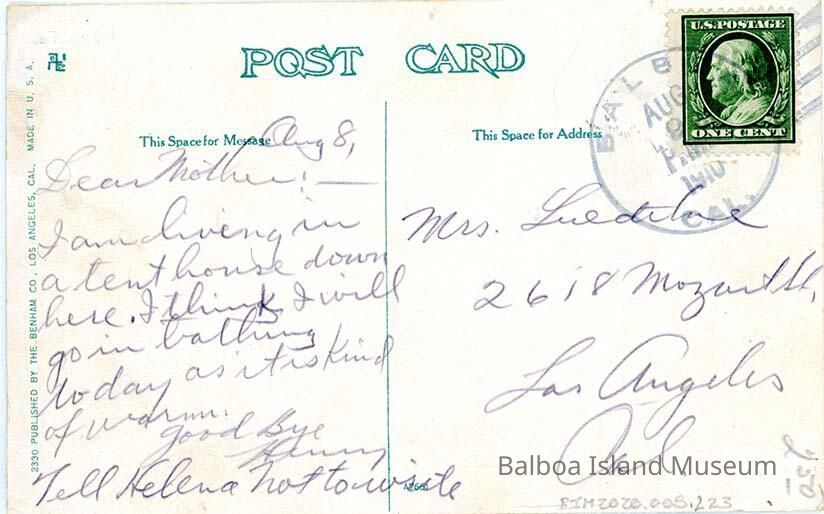 POST CARD
This Space for Message
This Space for Address
2330 PUBLISHED BY THE BENHAM CO., LOS ANGELES, CAL. MADE IN U. S. A.
U.S. POSTAGE
ONE CENT
BALB
AUG
9
1910
CAL.
Aug 8,
Dear Mother:—
I am living in
a tent house down
here. I think I will
go in bathing
today as it is kind
of warm.
Good Bye
Henry
Tell Helena not to write
Mrs.
2618 Mozart St,
Los Angeles
Cal
Balboa Island Museum
BIM2020.005.223